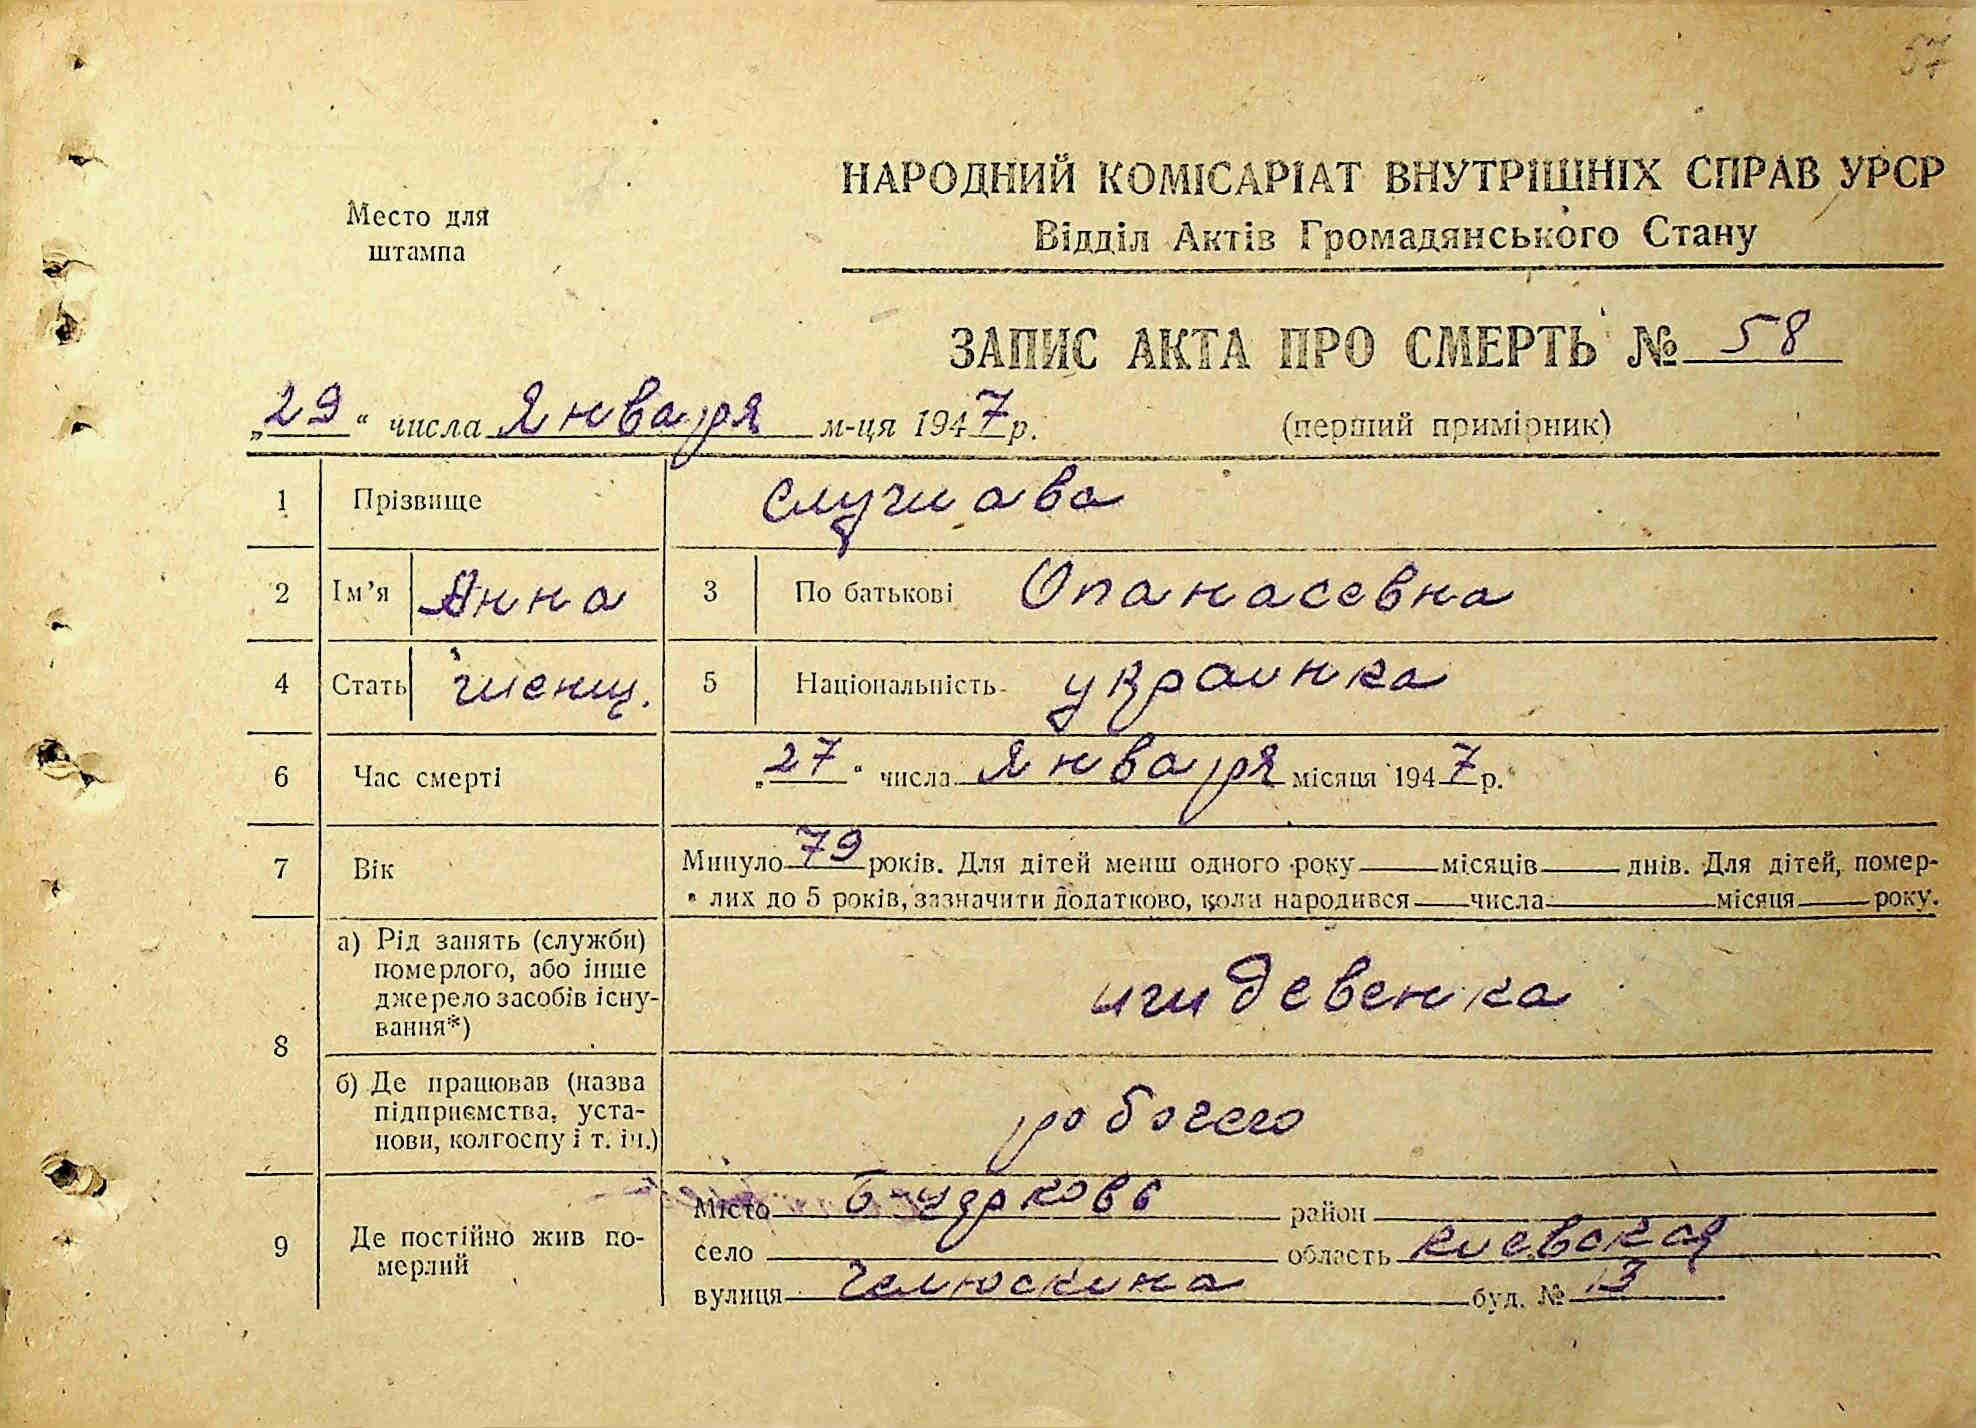 57
Место для
штампа
НАРОДНИЙ КОМІСАРІАТ ВНУТРІШНІХ СПРАВ УРСР
Відділ Актів Громадянського Стану
ЗАПИС АКТА ПРО СМЕРТЬ № 58
„29“ числа Января м-ця 1947 р. (перший примірник)
1 Прізвище
2 Ім’я Анна 3 По батькові Опанасевна
4 Стать женщ. 5 Національність украинка
6 Час смерті „27“ числа Января місяця 1947 р.
7 Вік Минуло 79 років. Для дітей менш одного року місяців днів. Для дітей, помер-
лих до 5 років, зазначити додатково, коли народився числа місяця року.
8 а) Рід занять (служби)
померлого, або інше
джерело засобів існу-
вання*)
иждевенка
б) Де працював (назва
підприємства, уста-
нови, колгоспу і т. ін.)
робочего
9 Де постійно жив по-
мерлий
Місто район
село область киевская
вулиця Челюскина буд. № 13